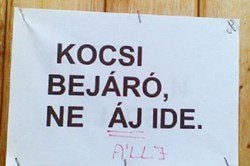 KOCSI
BEJÁRÓ,
NE ÁJ IDE.
ÁLLJ